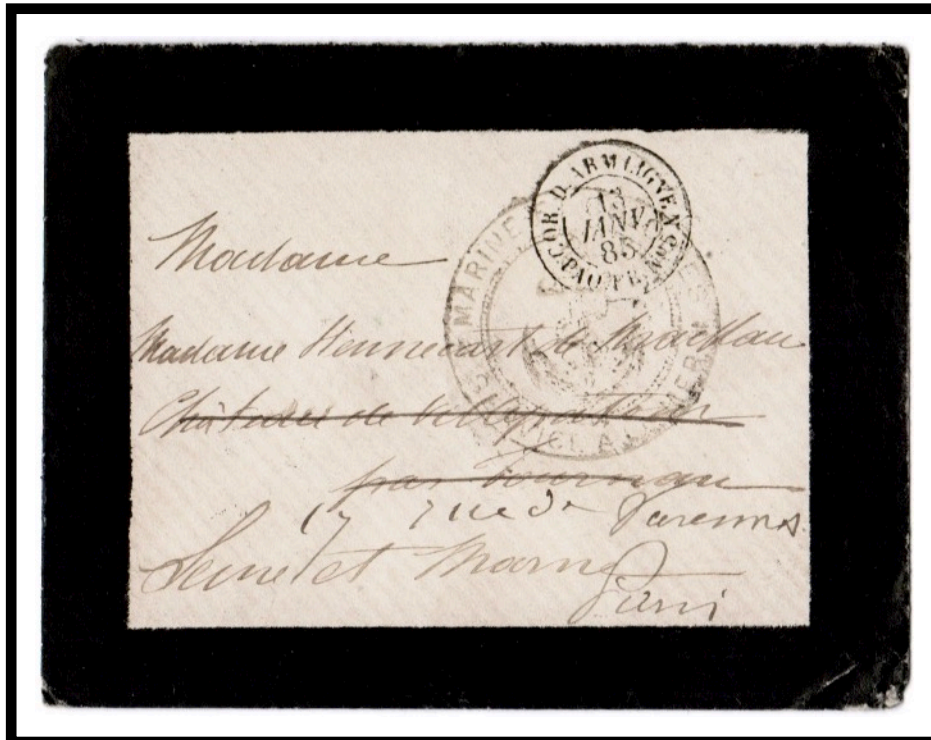 COR. D. ARM. LIGNE N
PAQ. FR.
13
JANV.
85
MARINE
SERVICE A LA MER
Madame
Madame Hennecart de
Château de
par Tournan
17 rue de Varennes
Seine et Marne
Paris